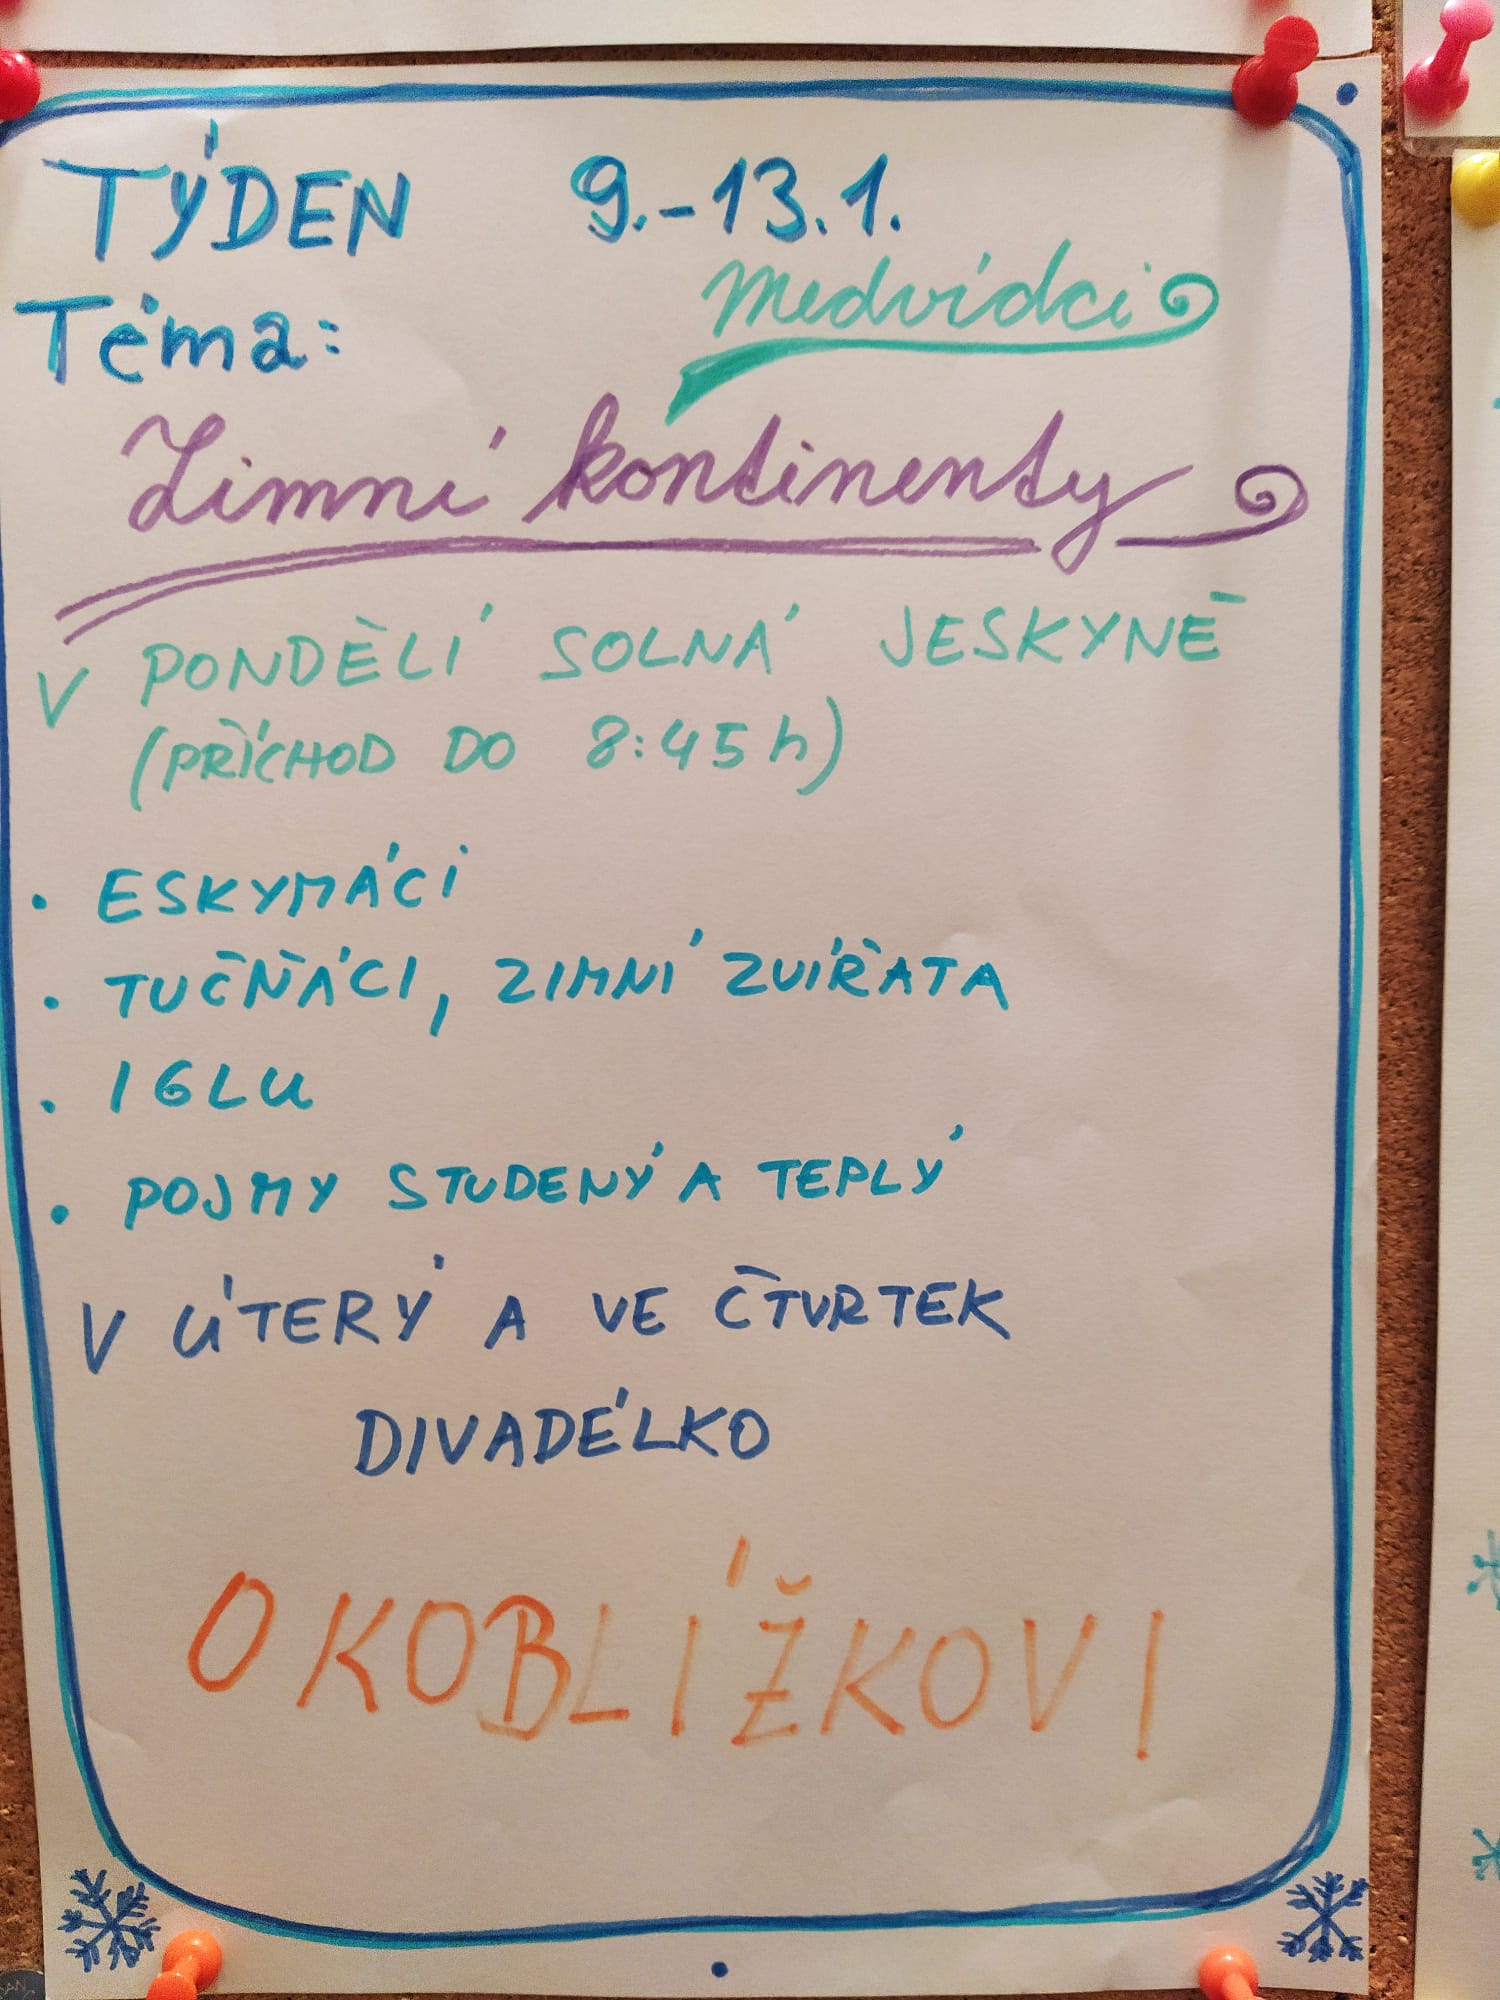 TÝDEN 9.-13.1.
Medvídci
Téma:
Zimní kontinenty
V PONDĚLÍ SOLNÁ JESKYNĚ
(PŘÍCHOD DO 8:45 h)
• ESKYMÁCI
• TUČŇÁCI, ZIMNÍ ZVÍŘATA
• IGLU
• POJMY STUDENÝ A TEPLÝ
V ÚTERÝ A VE ČTVRTEK
DIVADÉLKO
O KOBLÍŽKOVI